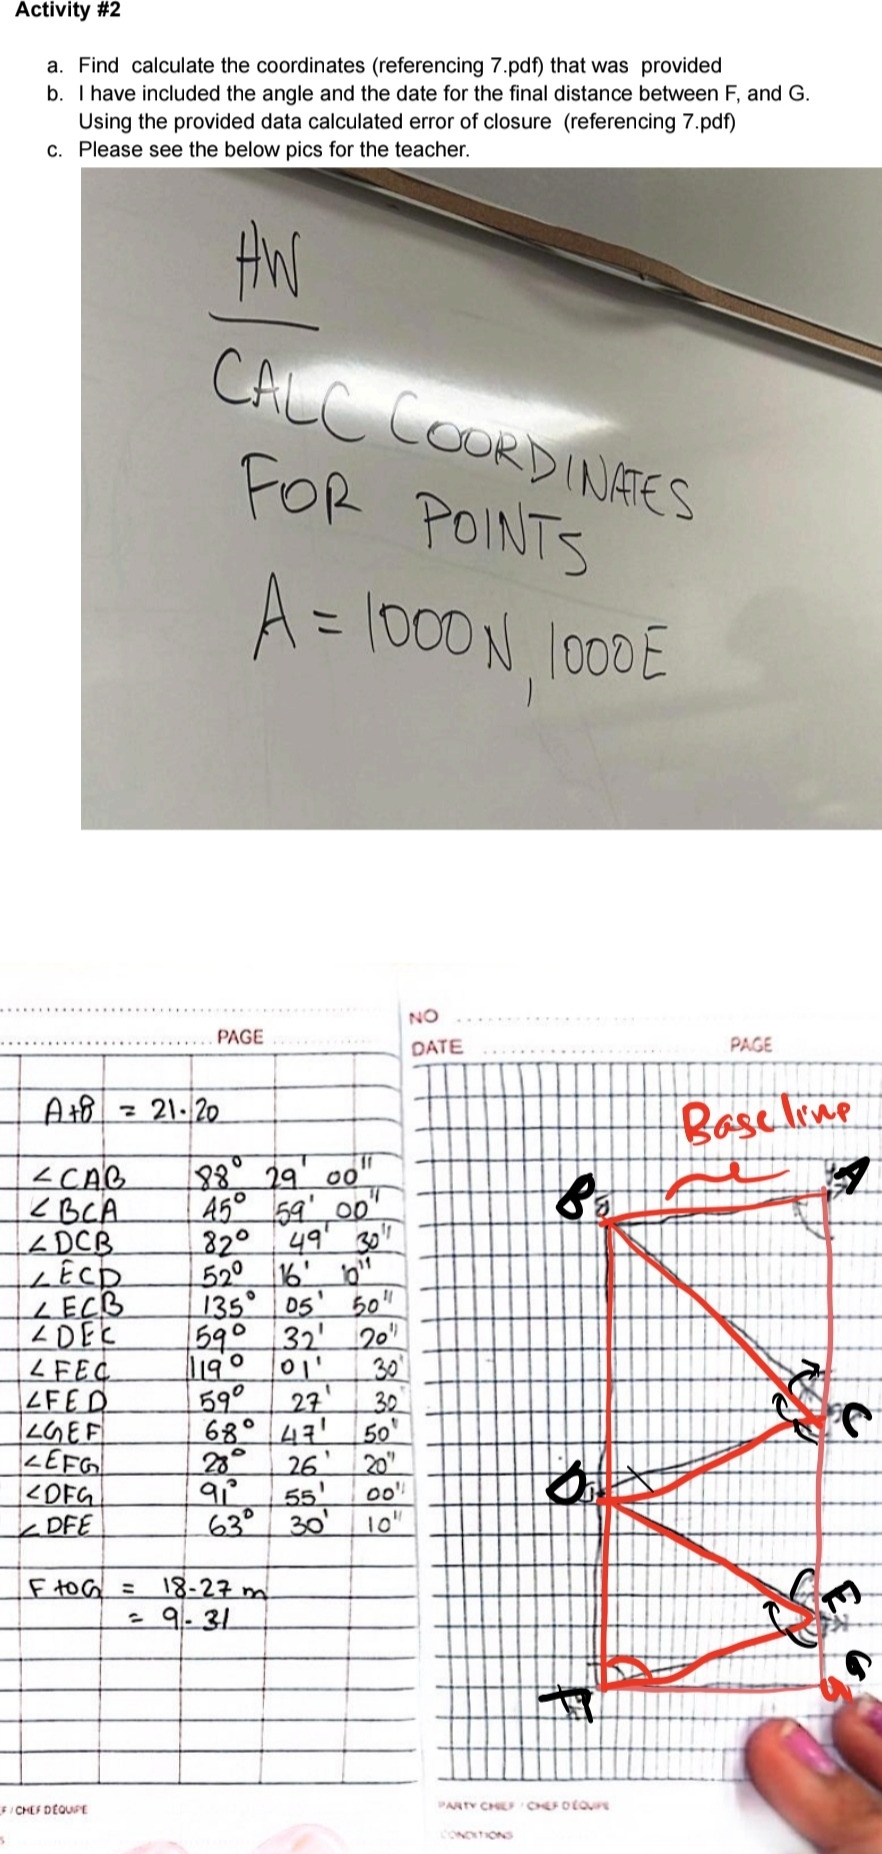 Activity #2
a. Find calculate the coordinates (referencing 7.pdf) that was provided
b. I have included the angle and the date for the final distance between F, and G.
Using the provided data calculated error of closure (referencing 7.pdf)
c. Please see the below pics for the teacher.
HW
CALC COORDINATES
FOR POINTS
A = 1000N, 1000E
PAGE
A+B = 21.20
∠CAB 88° 29' 00"
∠BCA 45° 59' 00"
∠DCB 82° 49' 30"
∠ECD 52° 16' 10"
∠ECB 135° 05' 50"
∠DEC 59° 32' 20"
∠FEC 119° 01' 30'
∠FED 59° 27' 30
∠GEF 68° 47' 50"
∠EFG 28° 26' 20"
∠DFG 91° 55' 00"
∠DFE 63° 30' 10"
F to G = 18.27 m
= 9.31
F / CHEF D'ÉQUIPE
NO
DATE
PAGE
Base line
B
A
C
D
E
G
F
PARTY CHIEF / CHEF D'ÉQUIPE
CONDITIONS